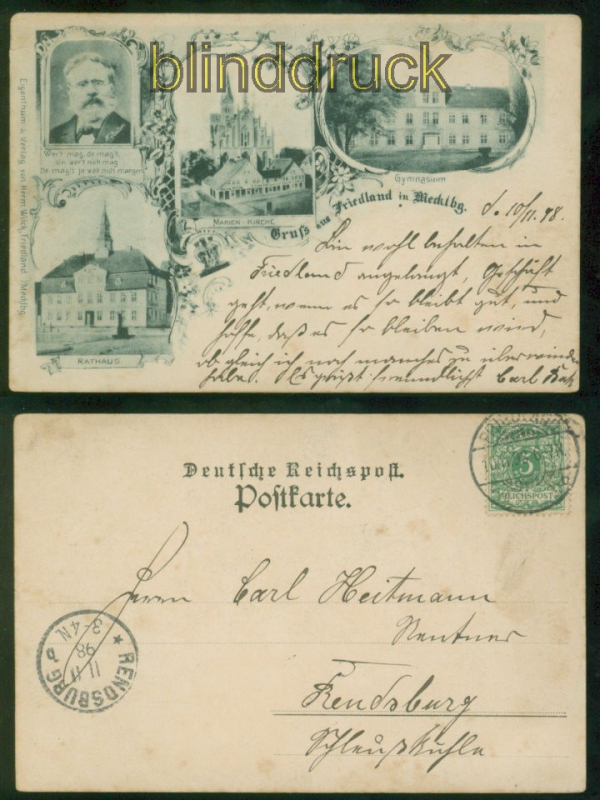 blinddruck
Wer't mag, de mag't,
Un wer't nich mag
De mag't je woll nich mœgen
MARIEN-KIRCHE
Gymnasium
RATHAUS
Eigenthum u. Verlag von Herm. Friedland Mecklbg.
Gruß aus Friedland in Mecklbg.
d. 10/11. 98.
Bin wohl behalten in
Friedland angelangt, Geschäft
geht, wenn es so bleibt gut, und
hoffe, daß es so bleiben wird,
obgleich ich noch manches zu überwinden
habe. Es grüßt freundlichst Carl
Deutsche Reichspost.
Postkarte.
5
REICHSPOST
Herrn Carl Heitmann
Rentner
Rendsburg
Schleußkuhle
RENDSBURG
11 11
98
3-4N